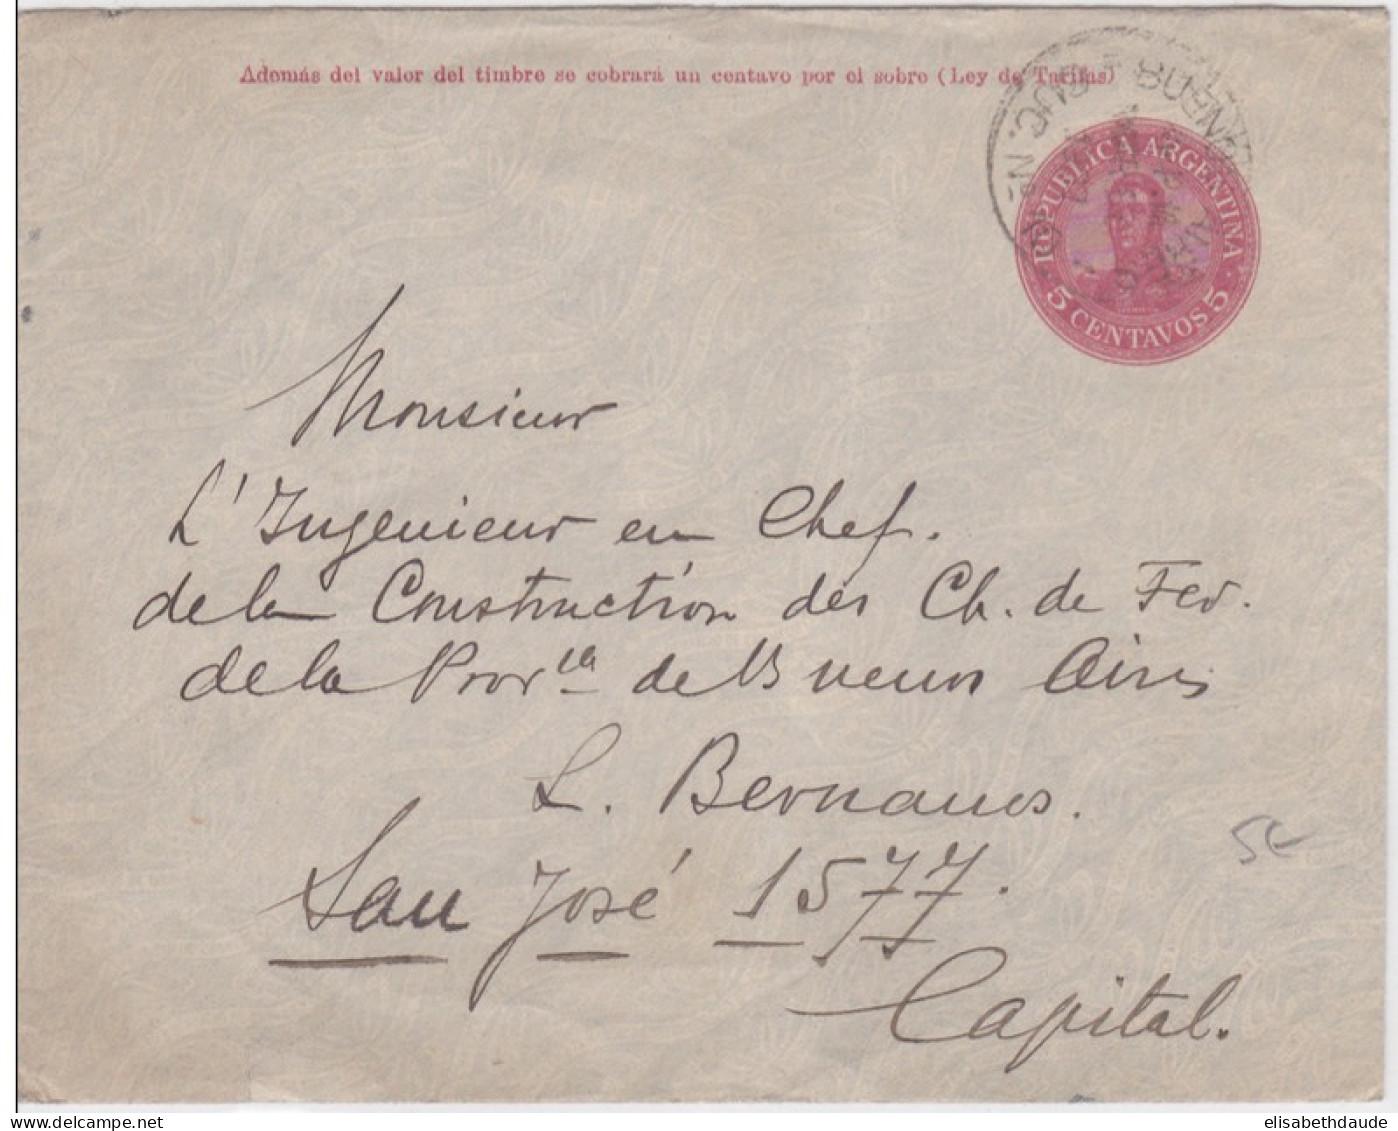 Además del valor del timbre se cobrará un centavo por el sobre (Ley de Tarifas)
REPUBLICA ARGENTINA
5 CENTAVOS 5
Monsieur
L'Ingenieur en Chef.
de la Construction des Ch. de Fer.
de la Provcia de Buenos Aires
L. Bernanos.
San José 1577.
Capital.
5€
www.delcampe.net
elisabethdaude